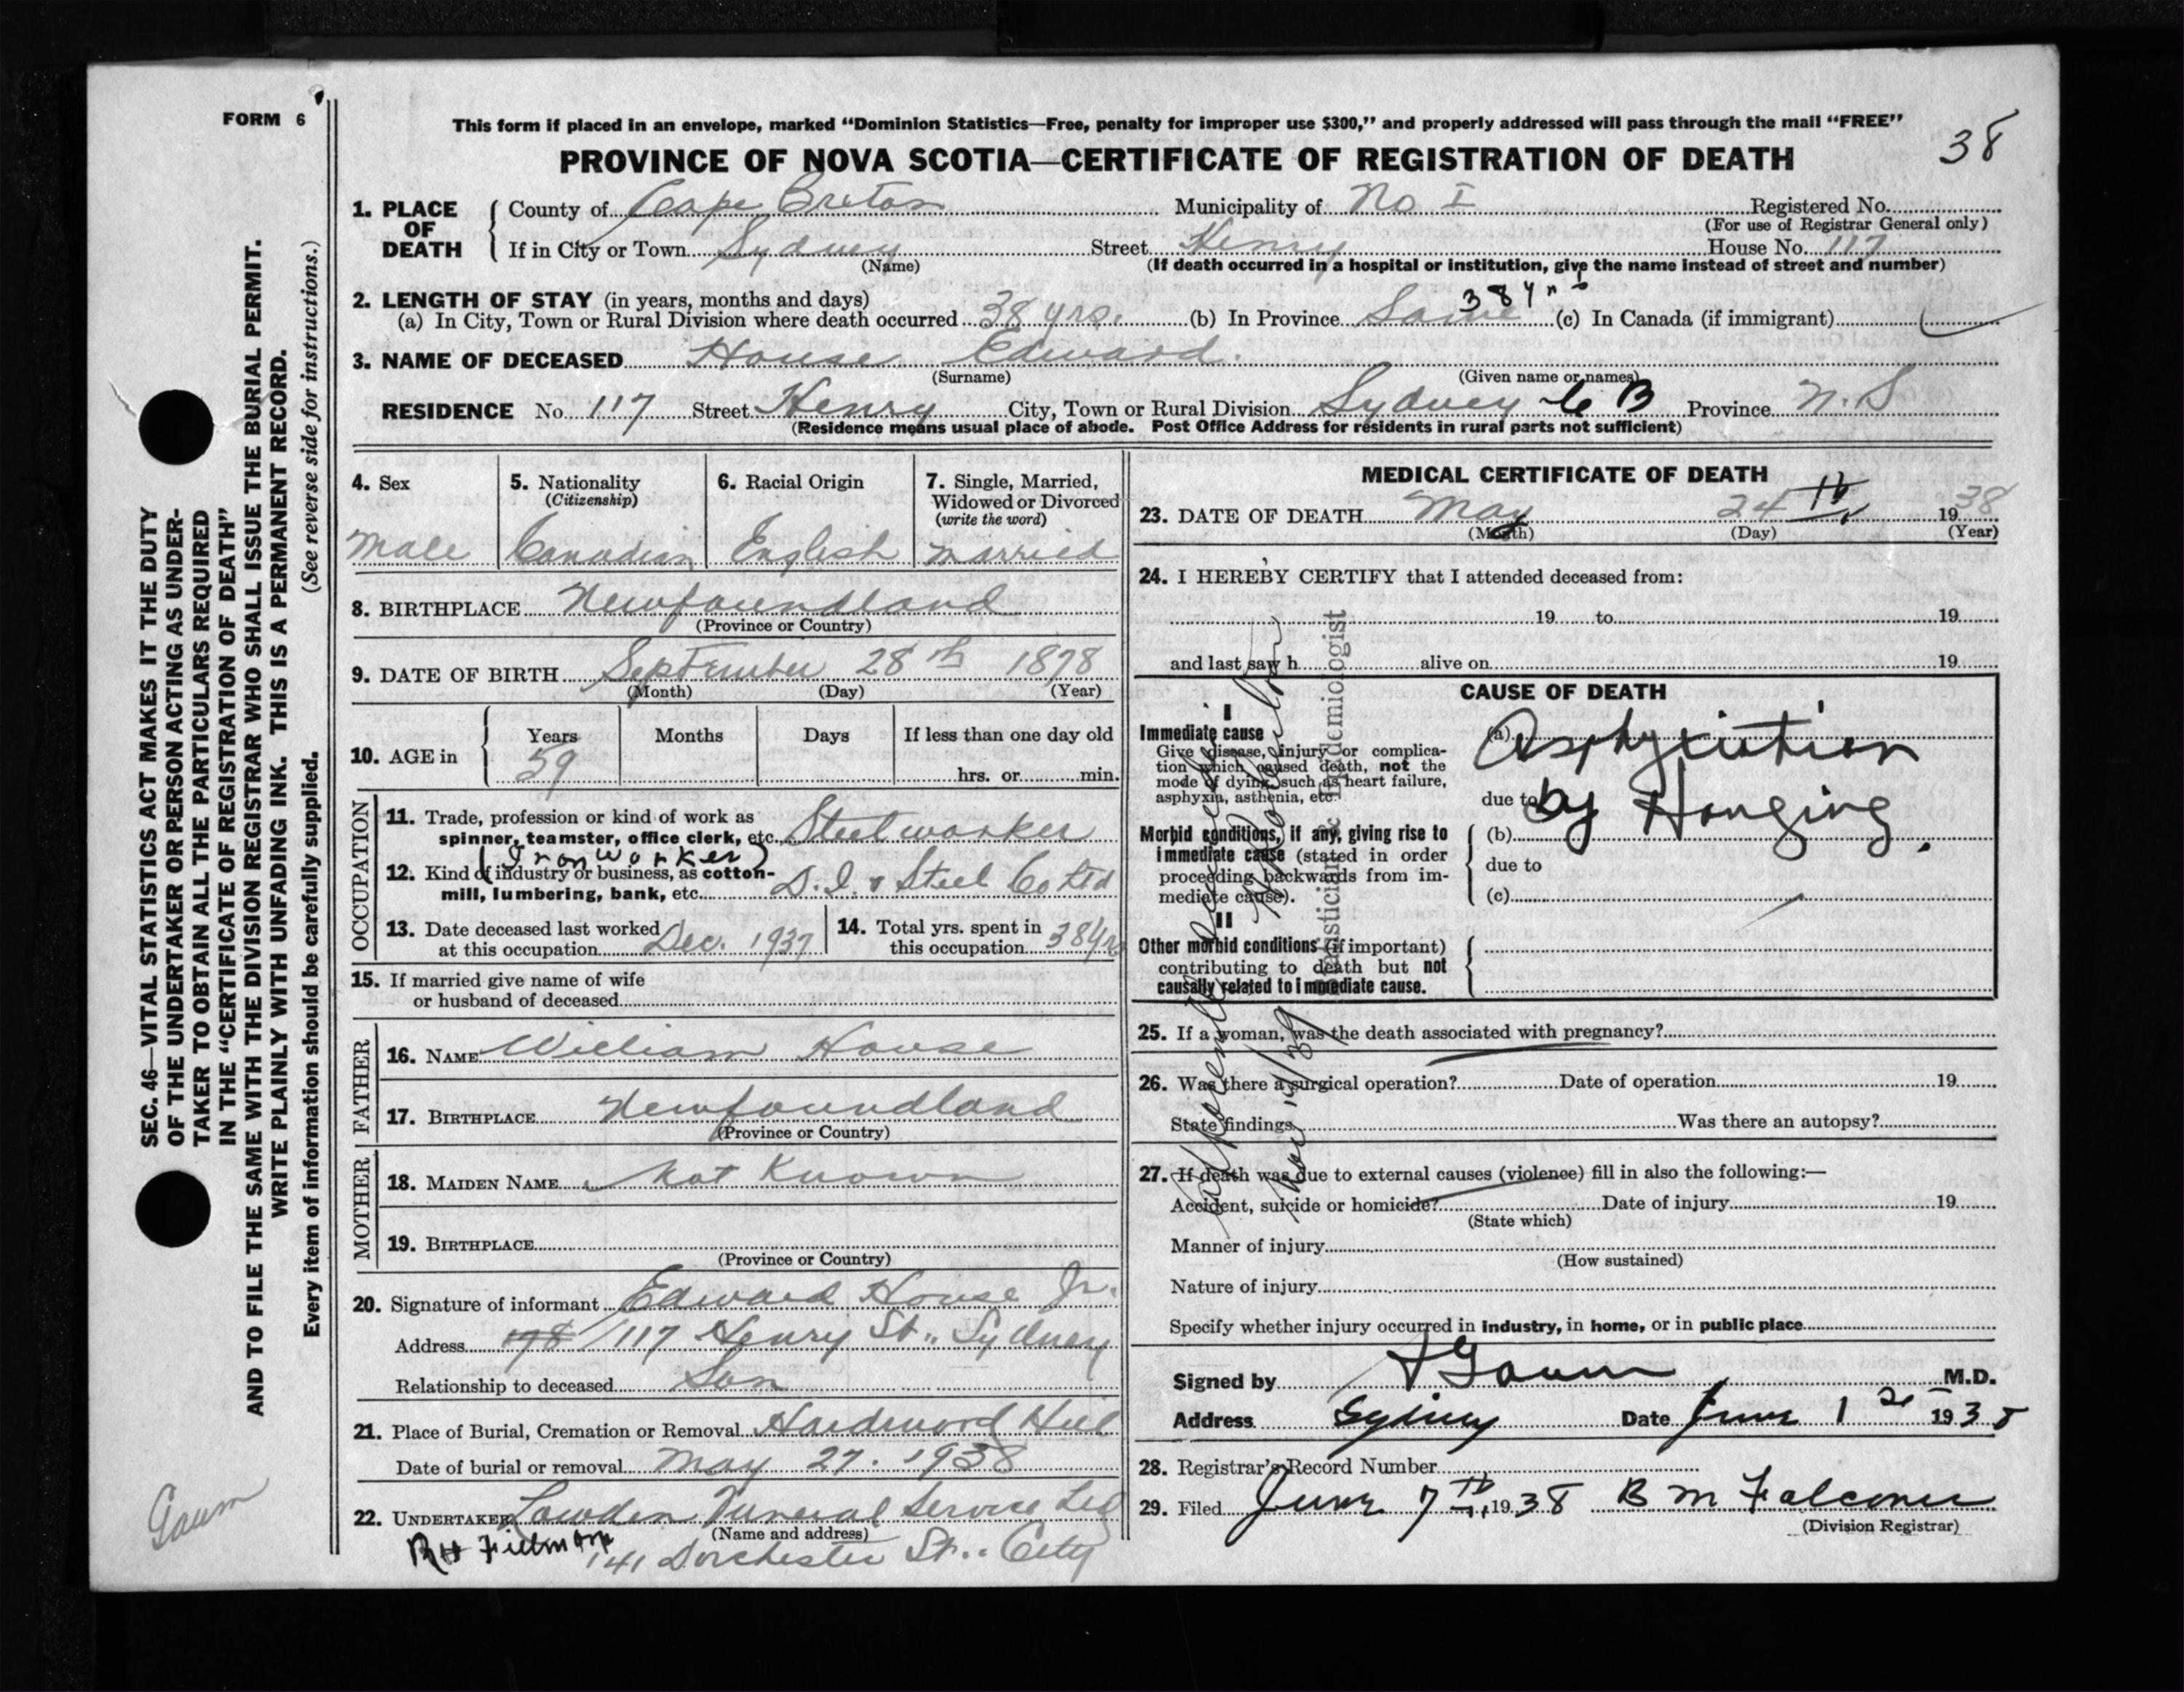 FORM 6
This form if placed in an envelope, marked “Dominion Statistics—Free, penalty for improper use $300,” and properly addressed will pass through the mail “FREE”
38
PROVINCE OF NOVA SCOTIA—CERTIFICATE OF REGISTRATION OF DEATH
1. PLACE OF DEATH
County of Cape Breton Municipality of No I Registered No.
(For use of Registrar General only)
If in City or Town Sydney Street Henry House No. 117
(Name) (If death occurred in a hospital or institution, give the name instead of street and number)
2. LENGTH OF STAY (in years, months and days)
(a) In City, Town or Rural Division where death occurred 38 yrs. (b) In Province Same 38 yrs (c) In Canada (if immigrant)
3. NAME OF DECEASED House Edward.
(Surname) (Given name or names)
RESIDENCE No. 117 Street Henry City, Town or Rural Division Sydney C B Province N.S
(Residence means usual place of abode. Post Office Address for residents in rural parts not sufficient)
4. Sex
Male
5. Nationality
(Citizenship)
Canadian
6. Racial Origin
English
7. Single, Married,
Widowed or Divorced
(write the word)
married
8. BIRTHPLACE Newfoundland
(Province or Country)
9. DATE OF BIRTH September 28th 1878
(Month) (Day) (Year)
10. AGE in
Years Months Days If less than one day old
59 hrs. or min.
OCCUPATION
11. Trade, profession or kind of work as
spinner, teamster, office clerk, etc. Steelworker
(Iron Worker)
12. Kind of industry or business, as cotton-
mill, lumbering, bank, etc. D.I. & Steel Co Ltd
13. Date deceased last worked
at this occupation Dec. 1937
14. Total yrs. spent in
this occupation 38 yrs
15. If married give name of wife
or husband of deceased
FATHER
16. NAME William House
17. BIRTHPLACE Newfoundland
(Province or Country)
MOTHER
18. MAIDEN NAME Not Known
19. BIRTHPLACE
(Province or Country)
20. Signature of informant Edward House Jr.
Address 178 117 Henry St., Sydney
Relationship to deceased Son
21. Place of Burial, Cremation or Removal Hardwood Hill
Date of burial or removal May 27. 1938
22. UNDERTAKER Lowden Funeral Service Ltd
(Name and address)
141 Dorchester St., City
MEDICAL CERTIFICATE OF DEATH
23. DATE OF DEATH May 24th 1938
(Month) (Day) (Year)
24. I HEREBY CERTIFY that I attended deceased from:
19 to 19
and last saw h alive on 19
CAUSE OF DEATH
I
Immediate cause
Give disease, injury or complica-
tion which caused death, not the
mode of dying, such as heart failure,
asphyxia, asthenia, etc.
(a) Asphyxiation
due to by Hanging.
Morbid conditions, if any, giving rise to
immediate cause (stated in order
proceeding backwards from im-
mediate cause).
(b)
due to
(c)
II
Other morbid conditions (if important)
contributing to death but not
causally related to immediate cause.
25. If a woman, was the death associated with pregnancy?
26. Was there a surgical operation? Date of operation 19
State findings Was there an autopsy?
27. If death was due to external causes (violence) fill in also the following:—
Accident, suicide or homicide? Date of injury 19
(State which)
Manner of injury
(How sustained)
Nature of injury
Specify whether injury occurred in industry, in home, or in public place
Signed by Gaum M.D.
Address Sydney Date June 1st 1938
28. Registrar's Record Number
29. Filed June 7th 1938 B M Falconer
(Division Registrar)
Epidemiologist
Nov 14/39
SEC. 46—VITAL STATISTICS ACT MAKES IT THE DUTY
OF THE UNDERTAKER OR PERSON ACTING AS UNDER-
TAKER TO OBTAIN ALL THE PARTICULARS REQUIRED
IN THE “CERTIFICATE OF REGISTRATION OF DEATH”
AND TO FILE THE SAME WITH THE DIVISION REGISTRAR WHO SHALL ISSUE THE BURIAL PERMIT.
WRITE PLAINLY WITH UNFADING INK. THIS IS A PERMANENT RECORD.
Every item of information should be carefully supplied. (See reverse side for instructions.)
Gaum